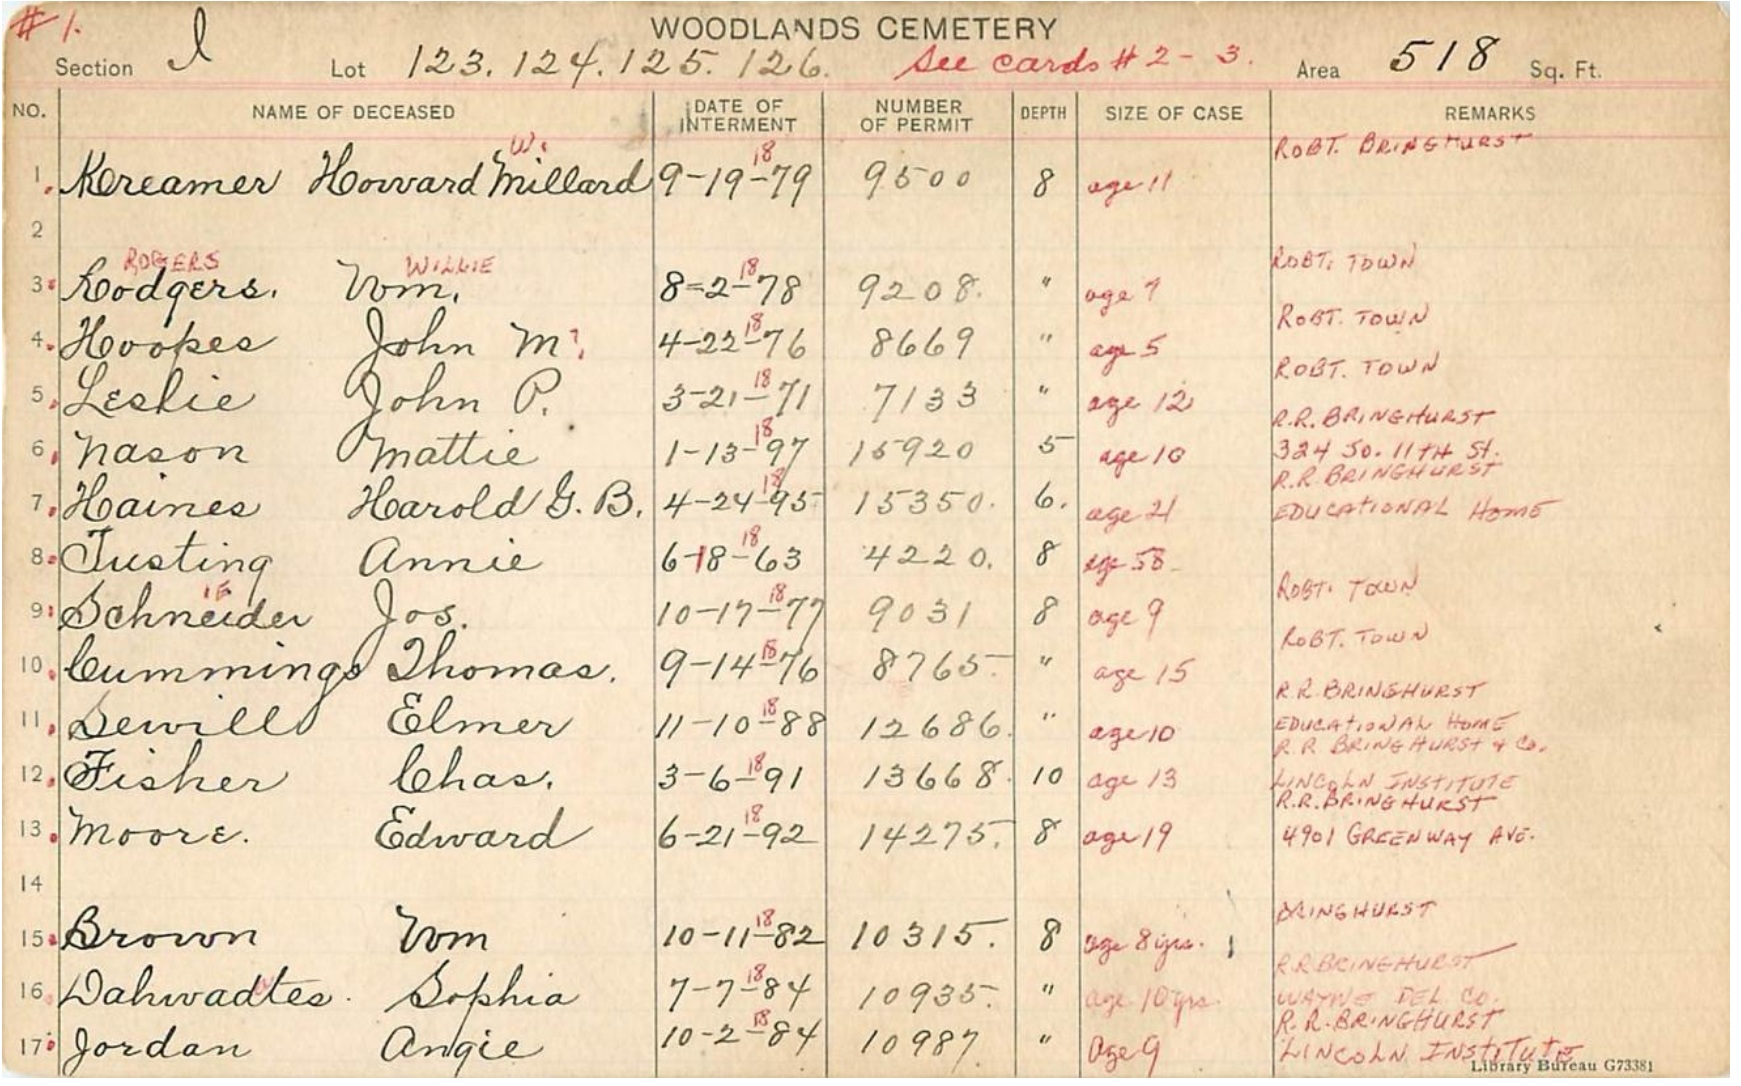 # 1.
WOODLANDS CEMETERY
Section I Lot 123. 124. 125. 126. See cards # 2 - 3. Area 518 Sq. Ft.
NO. NAME OF DECEASED DATE OF INTERMENT NUMBER OF PERMIT DEPTH SIZE OF CASE REMARKS
W. 18 ROBT. BRINGHURST
1. Kreamer Howard Millard 9-19-79 9500 8 age 11
2
ROGERS WILLIE 18 ROBT. TOWN
3. Rodgers. Wm. 8-2-78 9208. " age 7
18 ROBT. TOWN
4. Hoopes John M? 4-22-76 8669 " age 5
18 ROBT. TOWN
5. Leslie John P. 3-21-71 7133 " age 12
18 R.R. BRINGHURST
6. Nason Mattie 1-13-97 15920 5 age 10 324 SO. 11TH ST.
18 R.R. BRINGHURST
7. Haines Harold G. B. 4-24-95 15350. 6. age 21 EDUCATIONAL HOME
18
8. Tusting Annie 6-18-63 4220. 8 age 58
IE 18 ROBT. TOWN
9. Schneider Jos. 10-17-77 9031 8 age 9
18 ROBT. TOWN
10. Cummings Thomas. 9-14-76 8765. " age 15
18 R.R. BRINGHURST
11. Sewill Elmer 11-10-88 12686. " age 10 EDUCATIONAL HOME
18 R.R. BRINGHURST & CO.
12. Fisher Chas. 3-6-91 13668. 10 age 13 LINCOLN INSTITUTE
18 R.R. BRINGHURST
13. Moore. Edward 6-21-92 14275. 8 age 19 4901 GREENWAY AVE.
14
18 BRINGHURST
15. Brown Wm 10-11-82 10315. 8 age 8 yrs.
18 R.R BRINGHURST
16. Dahwadtes. Sophia 7-7-84 10935. " age 10 yrs. WAYNE DEL. CO.
18 R.R. BRINGHURST
17. Jordan Angie 10-2-84 10987 " Age 9 LINCOLN INSTITUTE
Library Bureau G73381